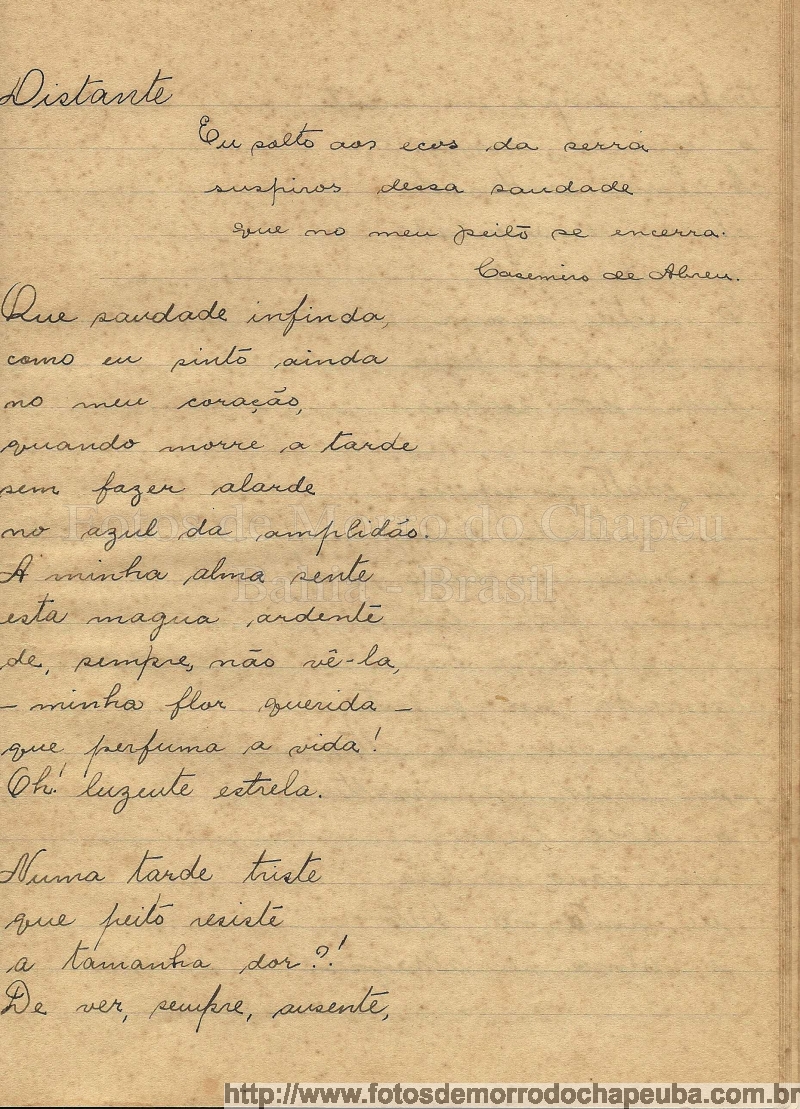 Distante
Eu solto aos ecos da serra
suspiros dessa saudade
que no meu peito se encerra.
Casemiro de Abreu.
Que saudade infinda,
como eu sinto ainda
no meu coração,
quando morre a tarde
sem fazer alarde
no azul da amplidão.
Fotos de Morro do Chapéu
A minha alma sente
Bahia - Brasil
esta magua ardente
de, sempre, não vê-la,
- minha flor querida -
que perfuma a vida!
Oh! luzente estrela.
Numa tarde triste
que peito resiste
a tamanha dor?!
De ver, sempre, ausente,
http://www.fotosdemorrodochapeuba.com.br